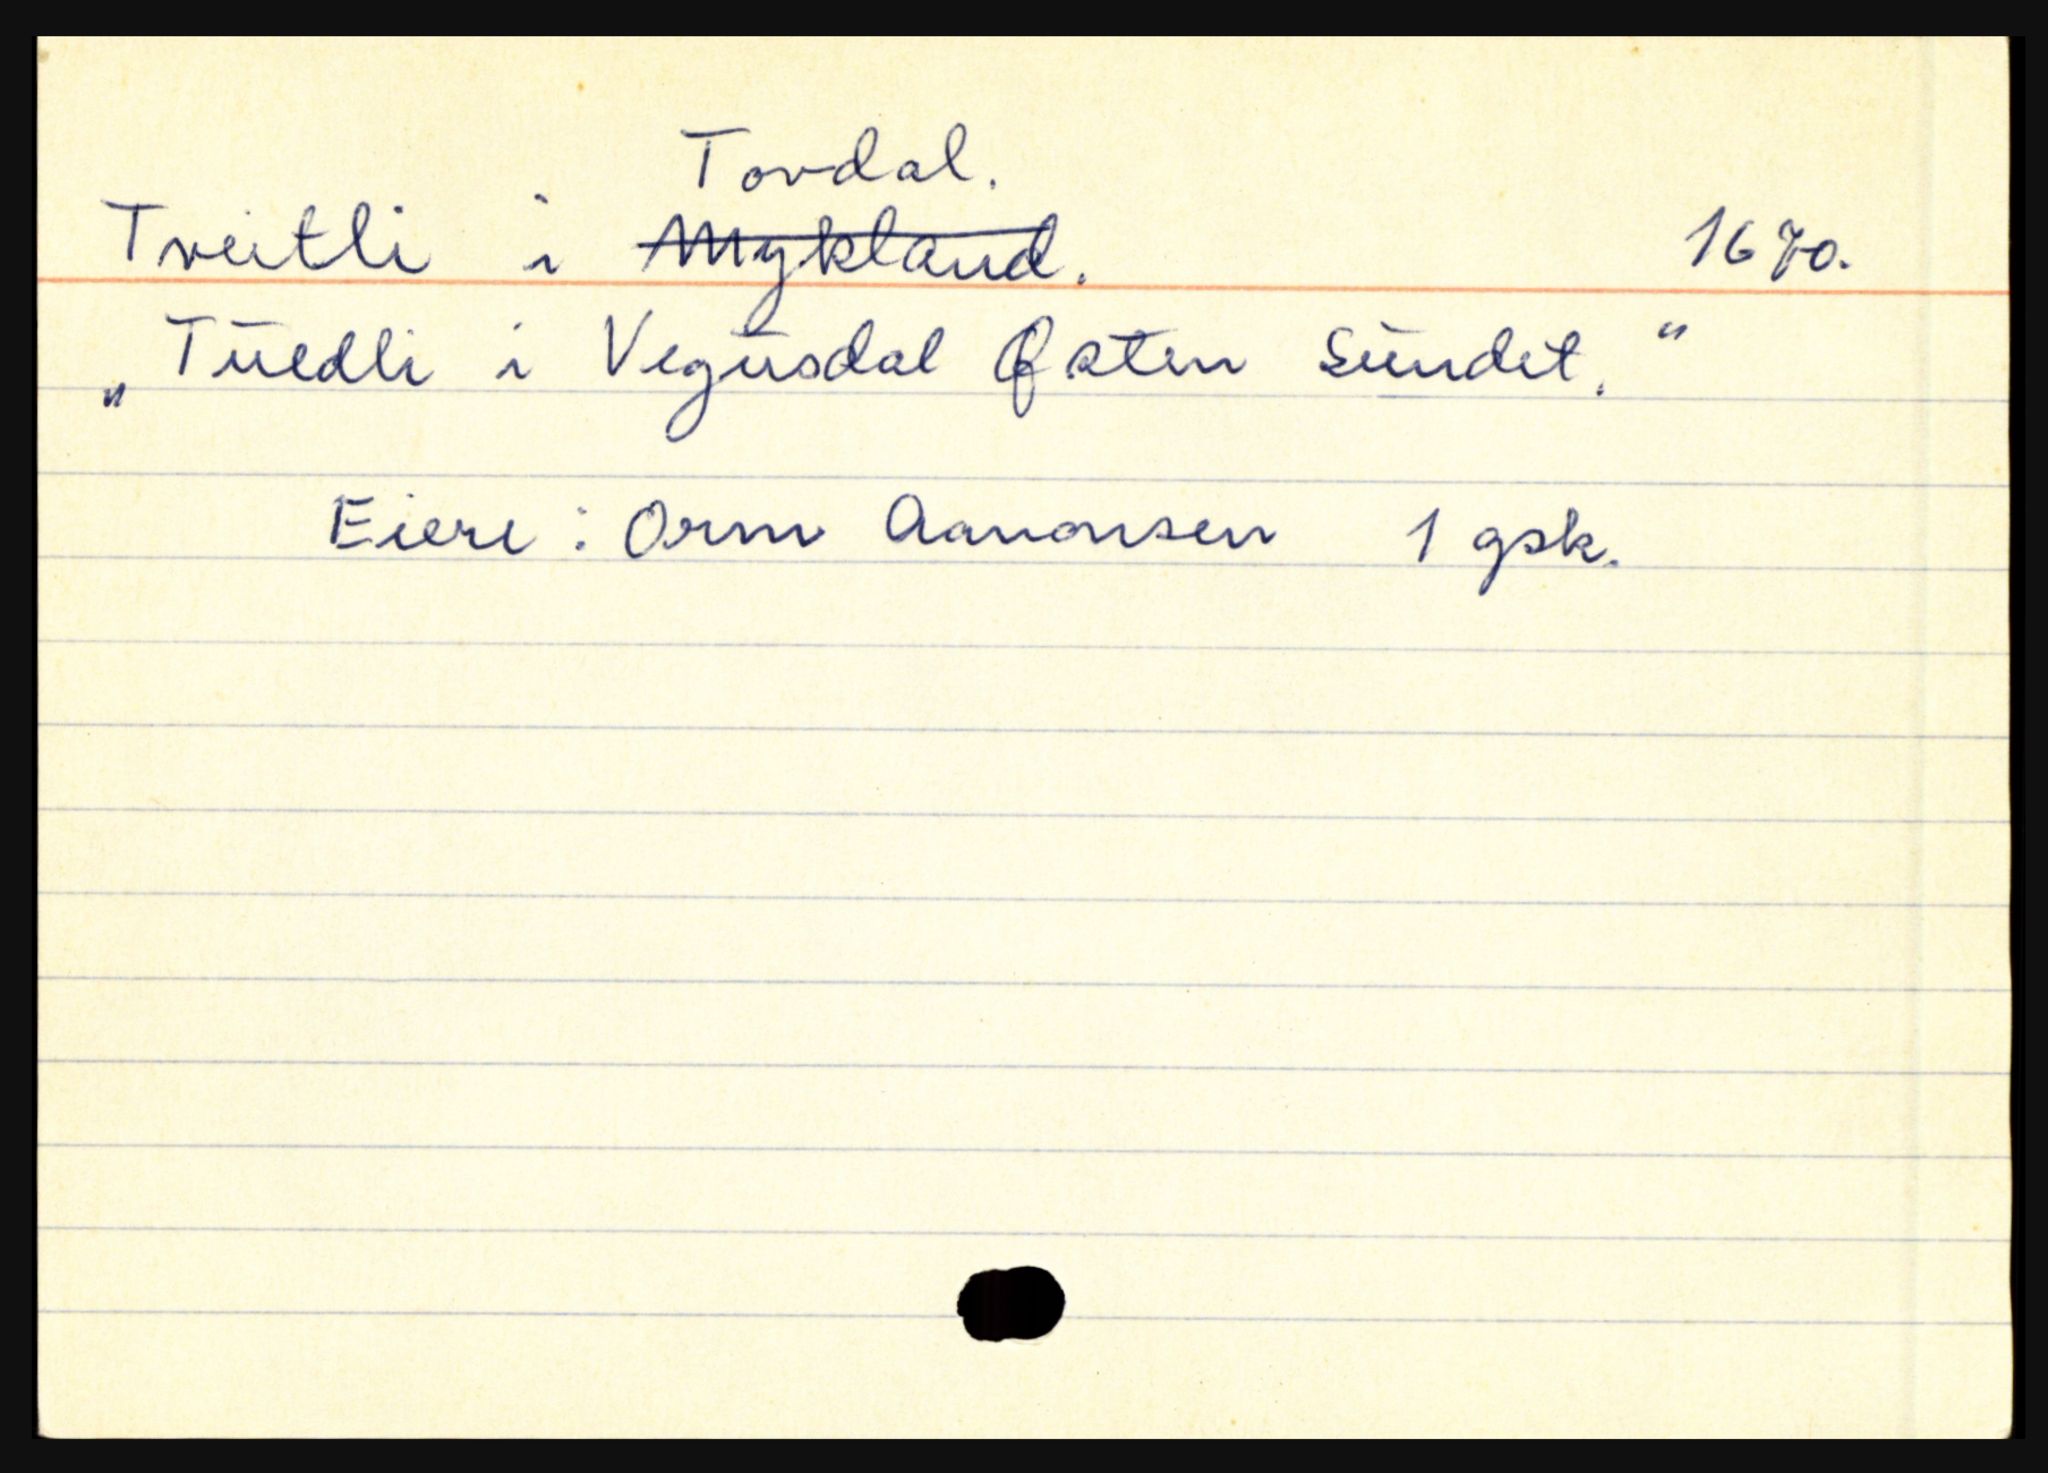 Tovdal.
Tveitli i Mykland. 1670.
„Tüedli i Vegüsdal Østen Sündet."
Eiere: Orm Aanonsen 1 gsk.